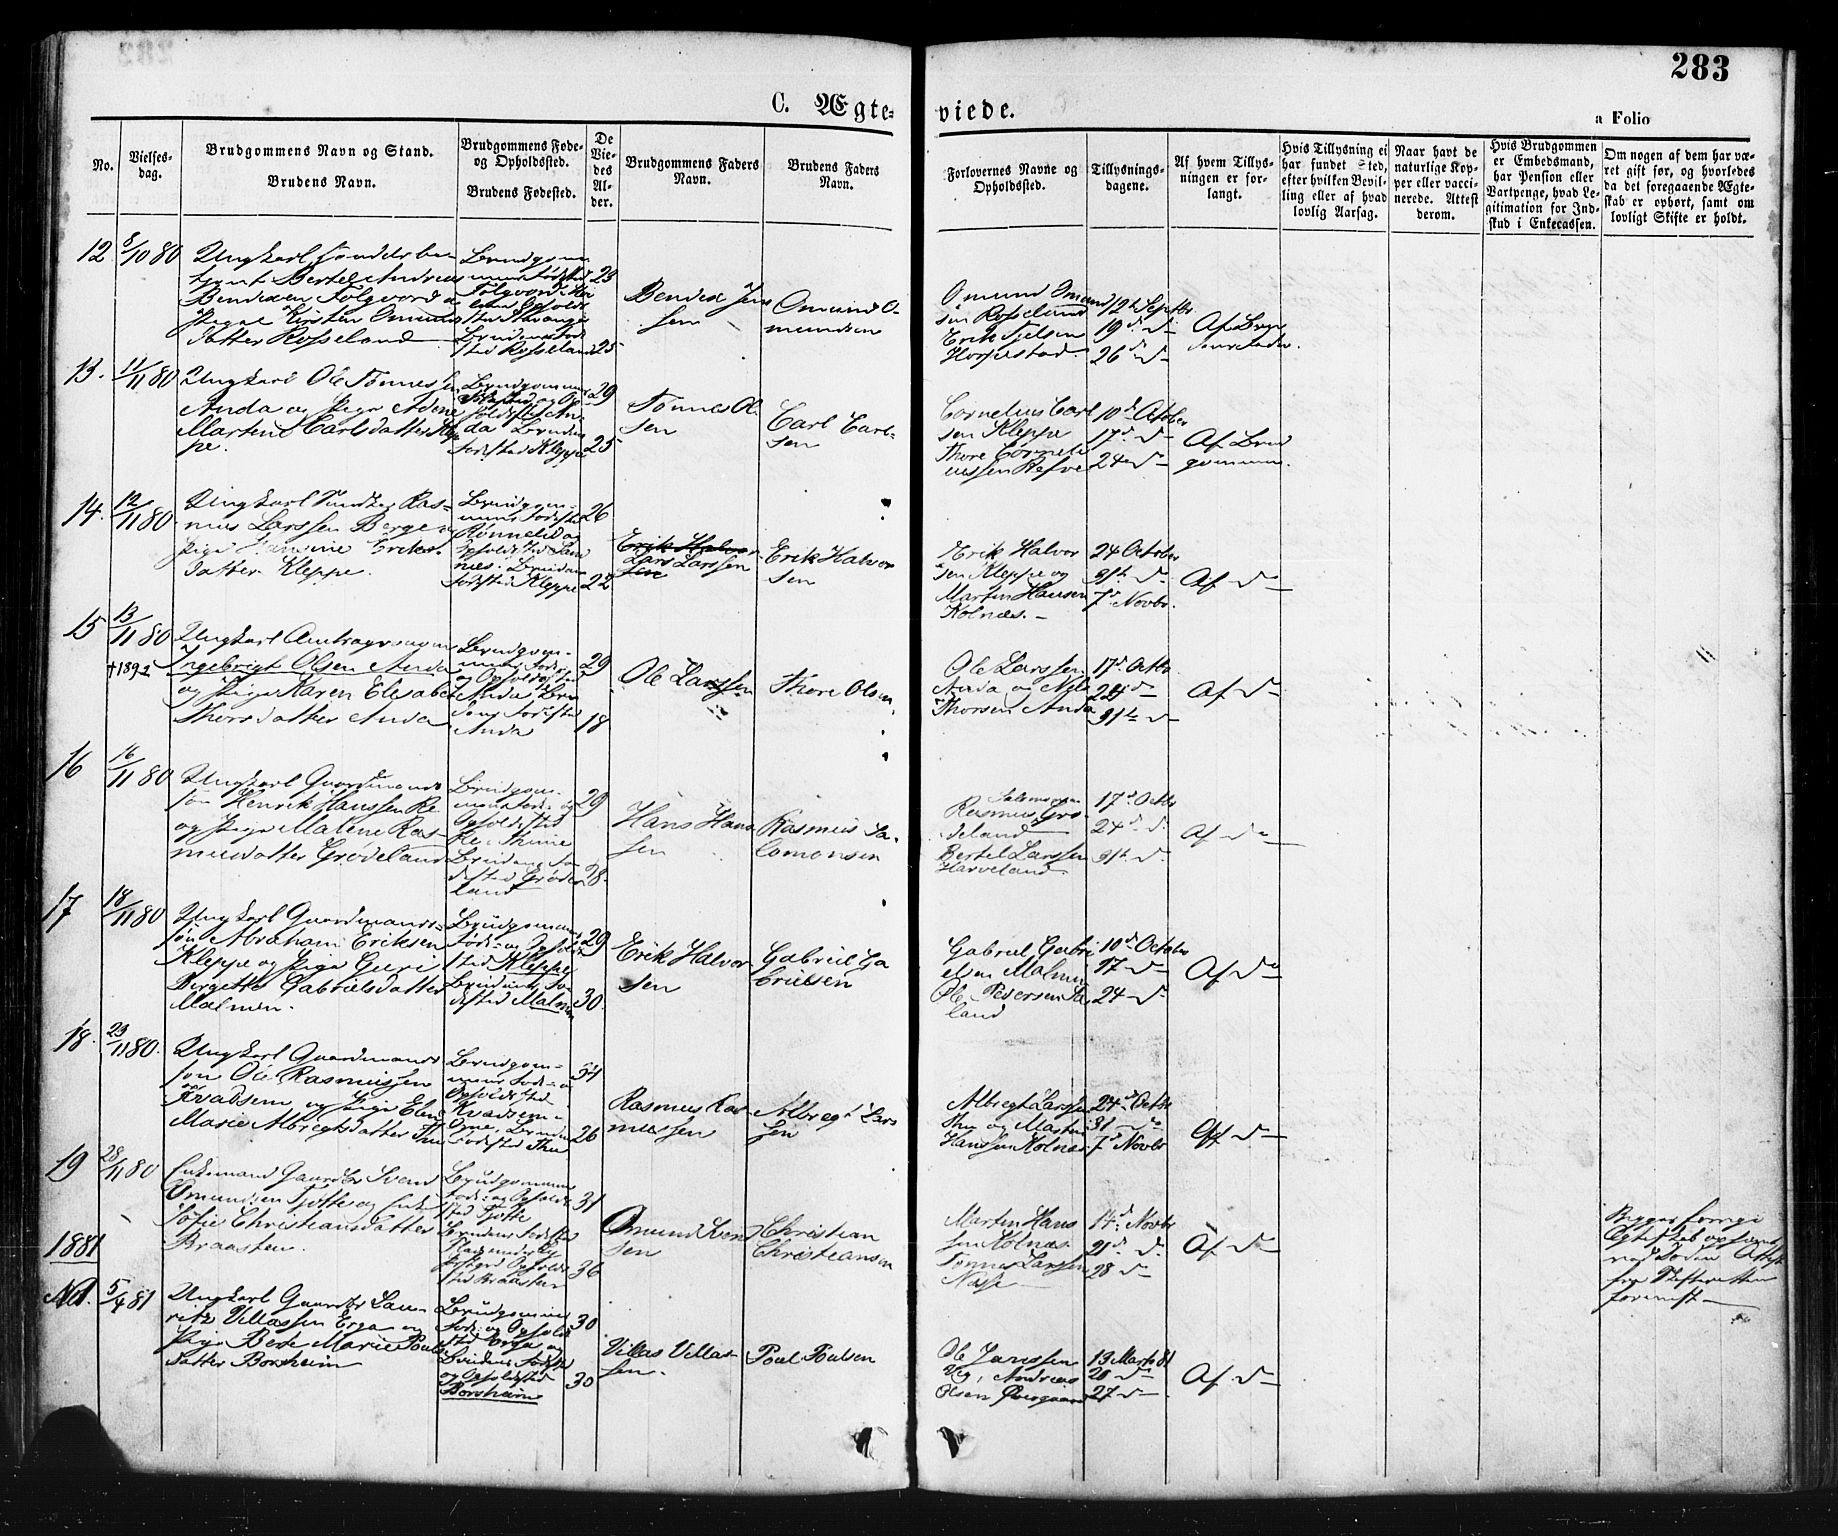 283
C. Ægteviede.
a Folio
No.
Vielsesdag.
Brudgommens Navn og Stand.
Brudens Navn.
Brudgommens Føde- og Opholdssted.
Brudens Fødested.
De Viedes Alder.
Brudgommens Faders Navn.
Brudens Faders Navn.
Forlovernes Navne og Opholdssted.
Tillysningsdagene.
Af hvem Tillysningen er forlangt.
Hvis Tillysning ei har fundet Sted, efter hvilken Bevilling eller af hvad lovlig Aarsag.
Naar havt de naturlige Kopper eller vaccinerede. Attest derom.
Hvis Brudgommen er Embedsmand, har Pension eller Vartpenge, hvad Legitimation for Indskud i Enkecassen.
Om nogen af dem har været gift før, og hvorledes da det foregaaende Ægteskab er ophørt, samt om lovligt Skifte er holdt.
12 8/10 80
Ungkarl
Bertel Andreas
Bendixen Folgvord &
Pige Kirsten Omunds
datter Rosseland
Rosseland
23
25
Bendix Jens
sen
Omund O-
mundsen
Omund Omund
sen Rosseland
Erik Tjelsen
12te Septbr
19 d. d
26 d
13. 11/11 80
Ungkarl Ole Tønnessen
Anda og Pige Adene
Martine Carlsdatter Klep
pe.
Brudgommens
Fødested og Op-
holdssted An-
da Brudens
Fødested Kleppe
29
25
Tønnes Ol
sen
Carl Carl-
sen
Cornelius Carl
sen Kleppe
Thore Corneli
ussen Refve
10d October
17d d
24 d
Af Brud
gommen.
14. 12/11 80
Ungkarl Ras-
mus Larssen Berge og
Pige Hansine Eriks-
datter Kleppe.
Fødested Kleppe
26
22
Erik Halvor
Lars Larssen
sen
Erik Halvor
sen
Erik Halvor
sen Kleppe og
Martin Hansen
Kolnæs.
24 October
31te d
7d Novbr.
Af d
15 13/11 80
†1892
Ungkarl
Ingebrigt Olsen Anda
og Pige Karen Elisabet
Thorsdatter Anda
Anda
29
18
Ole Larssen
Thore Olsen
Ole Larssen
Anda og Nils
Thorsen Anda
17d Octbr
24 d
31te d
Af d
16 16/11 80
Ungkarl Gaardmands
søn Henrik Hanssen Re
og Pige Malene Ras-
musdatter Grødeland
29
28
Hans Hans
sen
Rasmus Sa-
lomonsen
Salomonsen
Rasmus Grø-
deland
Bertel Larssen
Harveland
17d Octbr
24 d d
31te d.
Af d
17 18/11 80
Ungkarl Gaardmands-
søn Abraham Eriksen
Kleppe og Pige Guri
Bergette Gabrielsdatter
Malmen.
Brudgommens
Føde- og Ophold
sted Kleppe
Brudens Fø-
dested Malmen
29
30
Erik Halvor
sen
Gabriel Ga
brielsen
Gabriel Gabri
elsen Malmen
Ole Pedersen
land
10d October
17 d
24 d
Af d
18. 23/11 80.
Ungkarl Gaardmands
søn Ole Rasmussen
Kvadsem og Pige Elen
Marie Albregtsdatter Thu
Fødested Thu
34
26
Rasmus Ras
mussen
Albregt Lars
sen
Albregt Larssen
Thu og Martin
Hansen Kolnæs
24d Octbr
31 d
7d Novbr
Af d
19 28/11 80
Enkemand Gaardbr Svend
Omundsen Tjøtte og Enke
Sofie Christiansdatter
Braasten.
Brudgommens
Føde- og Ophold
sted Tjøtte
sted Braasten
31
36
Omund Sven
sen
Christian
Christiansen
Martin Hans
sen Kolnæs
Tønnes Larssen
Næsse
14d Novbr
21d d.
28 d
Af d
Begges forrige
Ægteskab
ved Døden Attest
fra Skifteretten
forevist
1881
No 1. 5/4 81
Ungkarl Gaardbr Lau-
ritz Villassen Erga og
Pige Berte Marie Pouls
datter Borsheim
Brudgommens
Føde- og Ophold
sted Erga og
Brudens Føde
og Opholdssted
Borsheim
30
30
Villas Villas-
sen.
Poul Poulsen
Ole Janssen
Andreas
Olsen Øvregaard
13 Marts 81
20 d
27 d
Af d